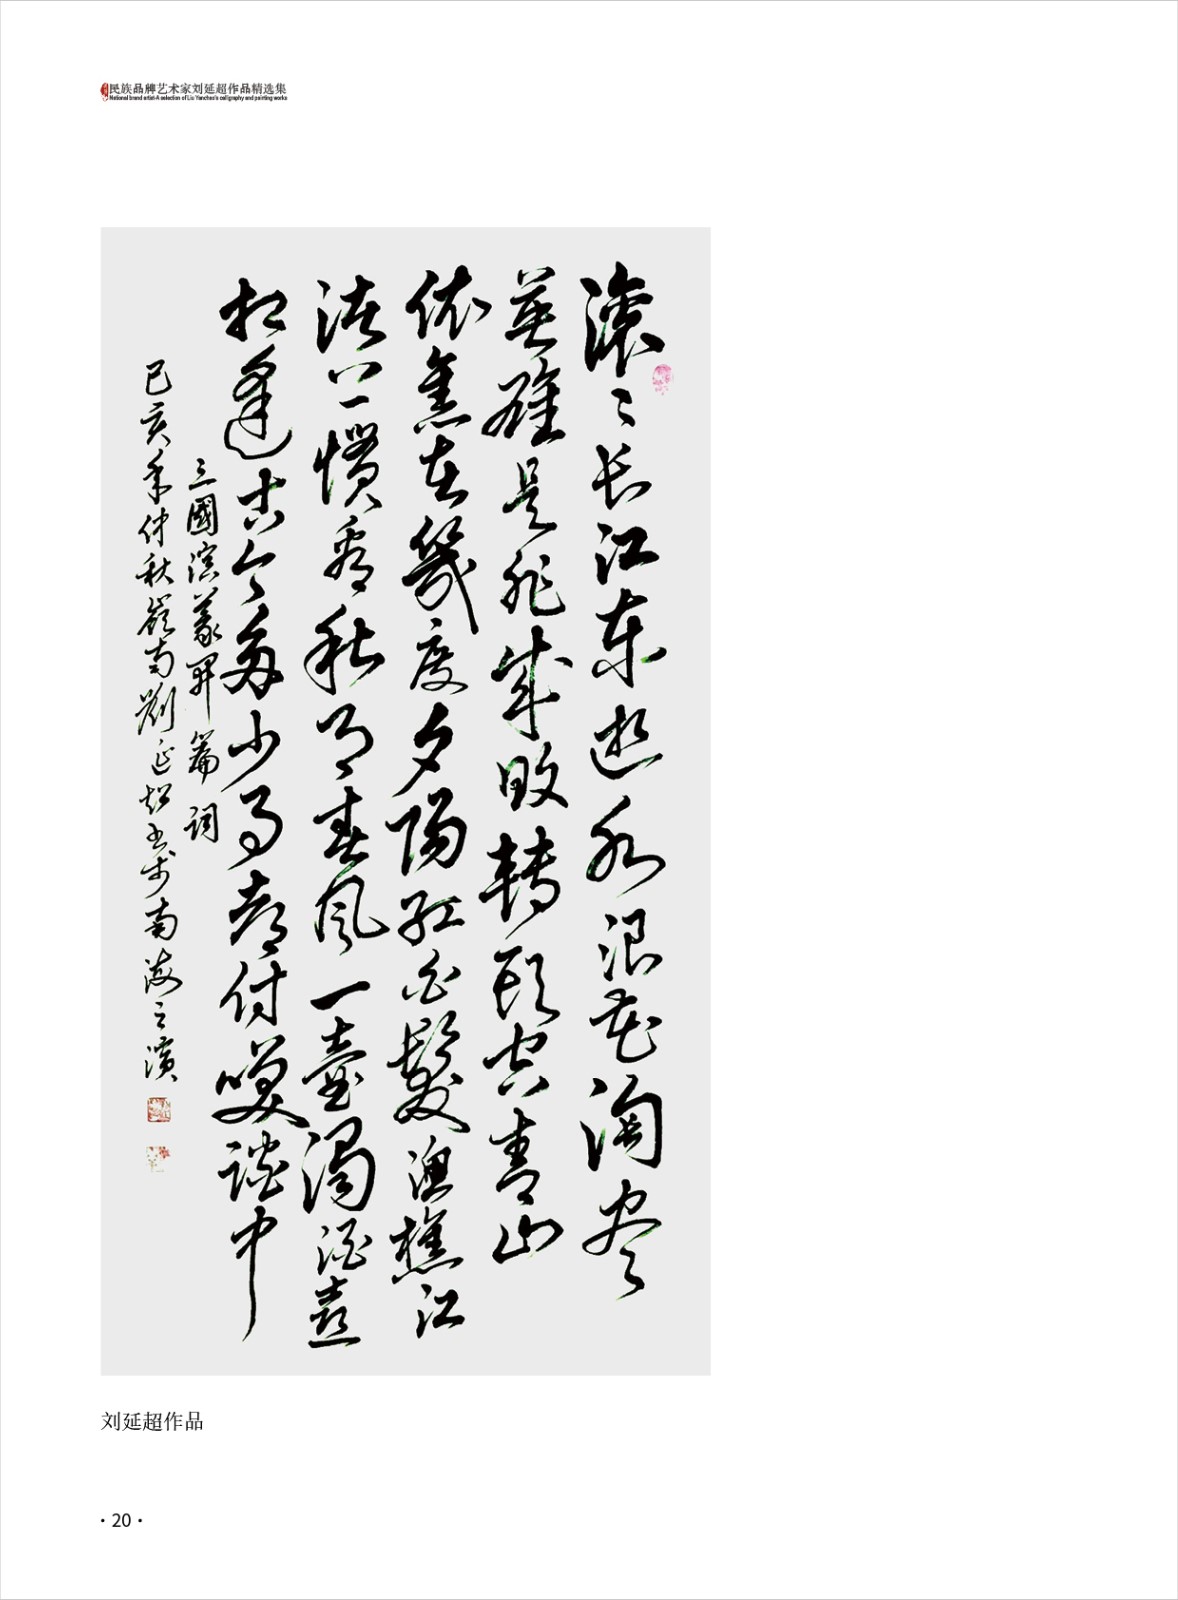 民族品牌艺术家刘延超作品精选集
National brand artist-A selection of Liu Yanchao's calligraphy and painting works
滚〻长江东逝水浪花淘尽
英雄是非成败轉頭空青山
依舊在幾度夕陽红白髮漁樵江
渚上慣看秋月春风一壺濁酒喜
相逢古今多少事都付笑談中
三國演義開篇词
己亥年仲秋嶺南劉延超书於南海之濱
刘延超作品
· 20 ·